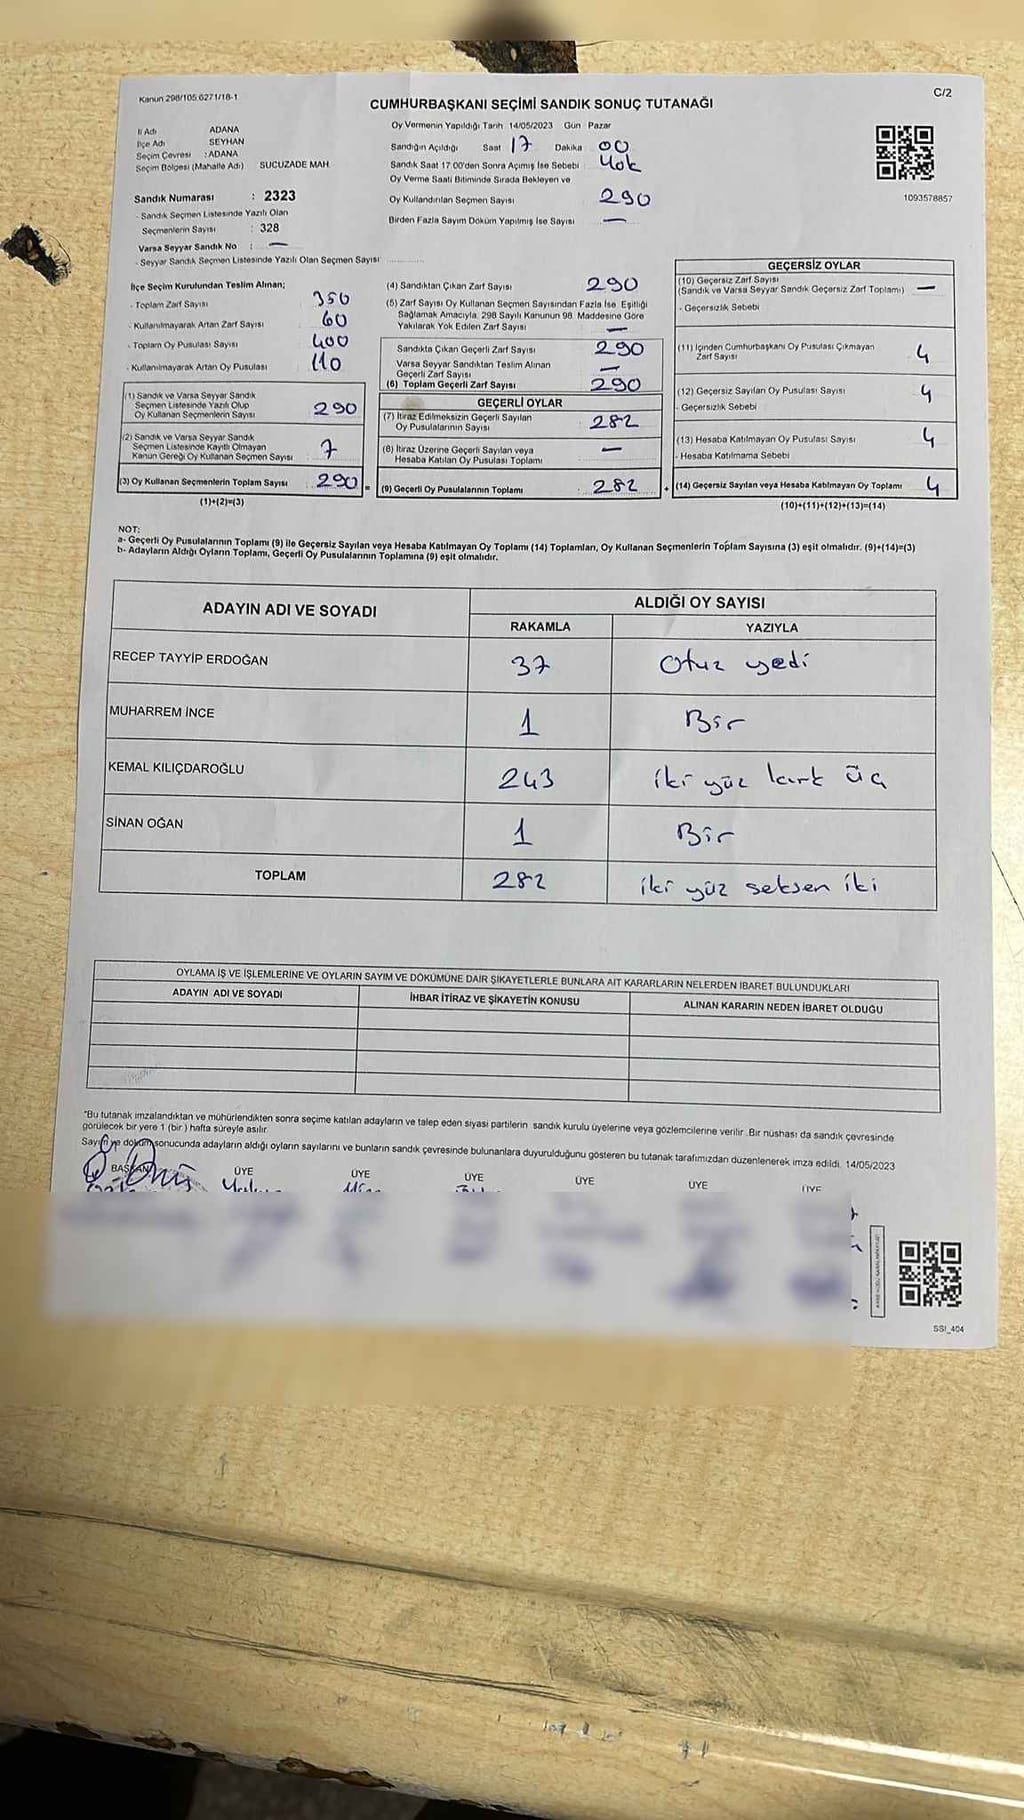 Kanun 298/105 6271/18-1
C/2
CUMHURBAŞKANI SEÇİMİ SANDIK SONUÇ TUTANAĞI
İl Adı ADANA
İlçe Adı SEYHAN
Seçim Çevresi : ADANA
Seçim Bölgesi (Mahalle Adı) SUCUZADE MAH.
Sandık Numarası : 2323
- Sandık Seçmen Listesinde Yazılı Olan
Seçmenlerin Sayısı : 328
Varsa Seyyar Sandık No : —
- Seyyar Sandık Seçmen Listesinde Yazılı Olan Seçmen Sayısı
Oy Vermenin Yapıldığı Tarih 14/05/2023 Gün Pazar
Sandığın Açıldığı Saat 17 Dakika 00
Sandık Saat 17.00'den Sonra Açılmış İse Sebebi Yok
Oy Verme Saati Bitiminde Sırada Bekleyen ve
Oy Kullandırılan Seçmen Sayısı 290
Birden Fazla Sayım Döküm Yapılmış İse Sayısı —
1093578857
İlçe Seçim Kurulundan Teslim Alınan;
- Toplam Zarf Sayısı 350
- Kullanılmayarak Artan Zarf Sayısı 60
- Toplam Oy Pusulası Sayısı 400
- Kullanılmayarak Artan Oy Pusulası 110
(1) Sandık ve Varsa Seyyar Sandık
Seçmen Listesinde Yazılı Olup
Oy Kullanan Seçmenlerin Sayısı 290
(2) Sandık ve Varsa Seyyar Sandık
Seçmen Listesinde Kayıtlı Olmayan
Kanun Gereği Oy Kullanan Seçmen Sayısı 7
(3) Oy Kullanan Seçmenlerin Toplam Sayısı 290 =
(1)+(2)=(3)
(4) Sandıktan Çıkan Zarf Sayısı 290
(5) Zarf Sayısı Oy Kullanan Seçmen Sayısından Fazla İse, Eşitliği
Sağlamak Amacıyla, 298 Sayılı Kanunun 98. Maddesine Göre
Yakılarak Yok Edilen Zarf Sayısı —
Sandıkta Çıkan Geçerli Zarf Sayısı 290
Varsa Seyyar Sandıktan Teslim Alınan
Geçerli Zarf Sayısı —
(6) Toplam Geçerli Zarf Sayısı 290
GEÇERLİ OYLAR
(7) İtiraz Edilmeksizin Geçerli Sayılan
Oy Pusulalarının Sayısı 282
(8) İtiraz Üzerine Geçerli Sayılan veya
Hesaba Katılan Oy Pusulası Toplamı —
(9) Geçerli Oy Pusulalarının Toplamı 282 +
GEÇERSİZ OYLAR
(10) Geçersiz Zarf Sayısı
(Sandık ve Varsa Seyyar Sandık Geçersiz Zarf Toplamı) —
- Geçersizlik Sebebi
(11) İçinden Cumhurbaşkanı Oy Pusulası Çıkmayan
Zarf Sayısı 4
(12) Geçersiz Sayılan Oy Pusulası Sayısı 4
- Geçersizlik Sebebi
(13) Hesaba Katılmayan Oy Pusulası Sayısı 4
- Hesaba Katılmama Sebebi
(14) Geçersiz Sayılan veya Hesaba Katılmayan Oy Toplamı 4
(10)+(11)+(12)+(13)=(14)
NOT:
a- Geçerli Oy Pusulalarının Toplamı (9) ile Geçersiz Sayılan veya Hesaba Katılmayan Oy Toplamı (14) Toplamları, Oy Kullanan Seçmenlerin Toplam Sayısına (3) eşit olmalıdır. (9)+(14)=(3)
b- Adayların Aldığı Oyların Toplamı, Geçerli Oy Pusulalarının Toplamına (9) eşit olmalıdır.
ADAYIN ADI VE SOYADI ALDIĞI OY SAYISI
RAKAMLA YAZIYLA
RECEP TAYYİP ERDOĞAN 37 Otuz yedi
MUHARREM İNCE 1 Bir
KEMAL KILIÇDAROĞLU 243 iki yüz kırk üç
SİNAN OĞAN 1 Bir
TOPLAM 282 iki yüz seksen iki
OYLAMA İŞ VE İŞLEMLERİNE VE OYLARIN SAYIM VE DÖKÜMÜNE DAİR ŞİKAYETLERLE BUNLARA AİT KARARLARIN NELERDEN İBARET BULUNDUKLARI
ADAYIN ADI VE SOYADI İHBAR İTİRAZ VE ŞİKAYETİN KONUSU ALINAN KARARIN NEDEN İBARET OLDUĞU
*Bu tutanak imzalandıktan ve mühürlendikten sonra seçime katılan adayların ve talep eden siyasi partilerin sandık kurulu üyelerine veya gözlemcilerine verilir. Bir nüshası da sandık çevresinde
görülecek bir yere 1 (bir) hafta süreyle asılır.
Sayım ve döküm sonucunda adayların aldığı oyların sayılarını ve bunların sandık çevresinde bulunanlara duyurulduğunu gösteren bu tutanak tarafımızdan düzenlenerek imza edildi. 14/05/2023
BAŞKAN ÜYE ÜYE ÜYE ÜYE ÜYE ÜYE
SSI_404